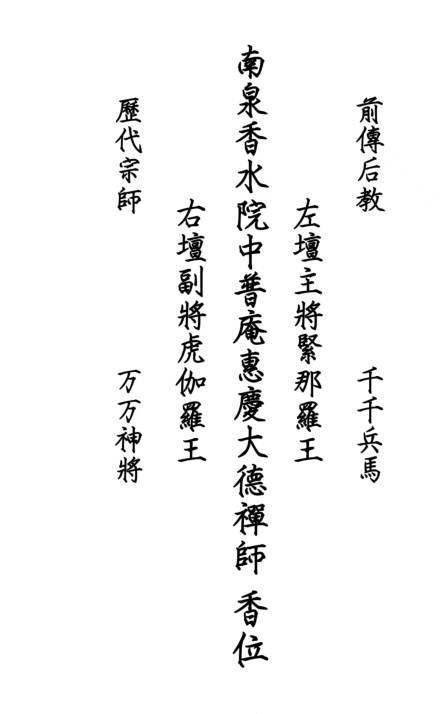 前傳后教　千千兵馬
左壇主將緊那羅王
南泉香水院中普庵惠慶大德禪師 香位
右壇副將虎伽羅王
歷代宗師　万万神將